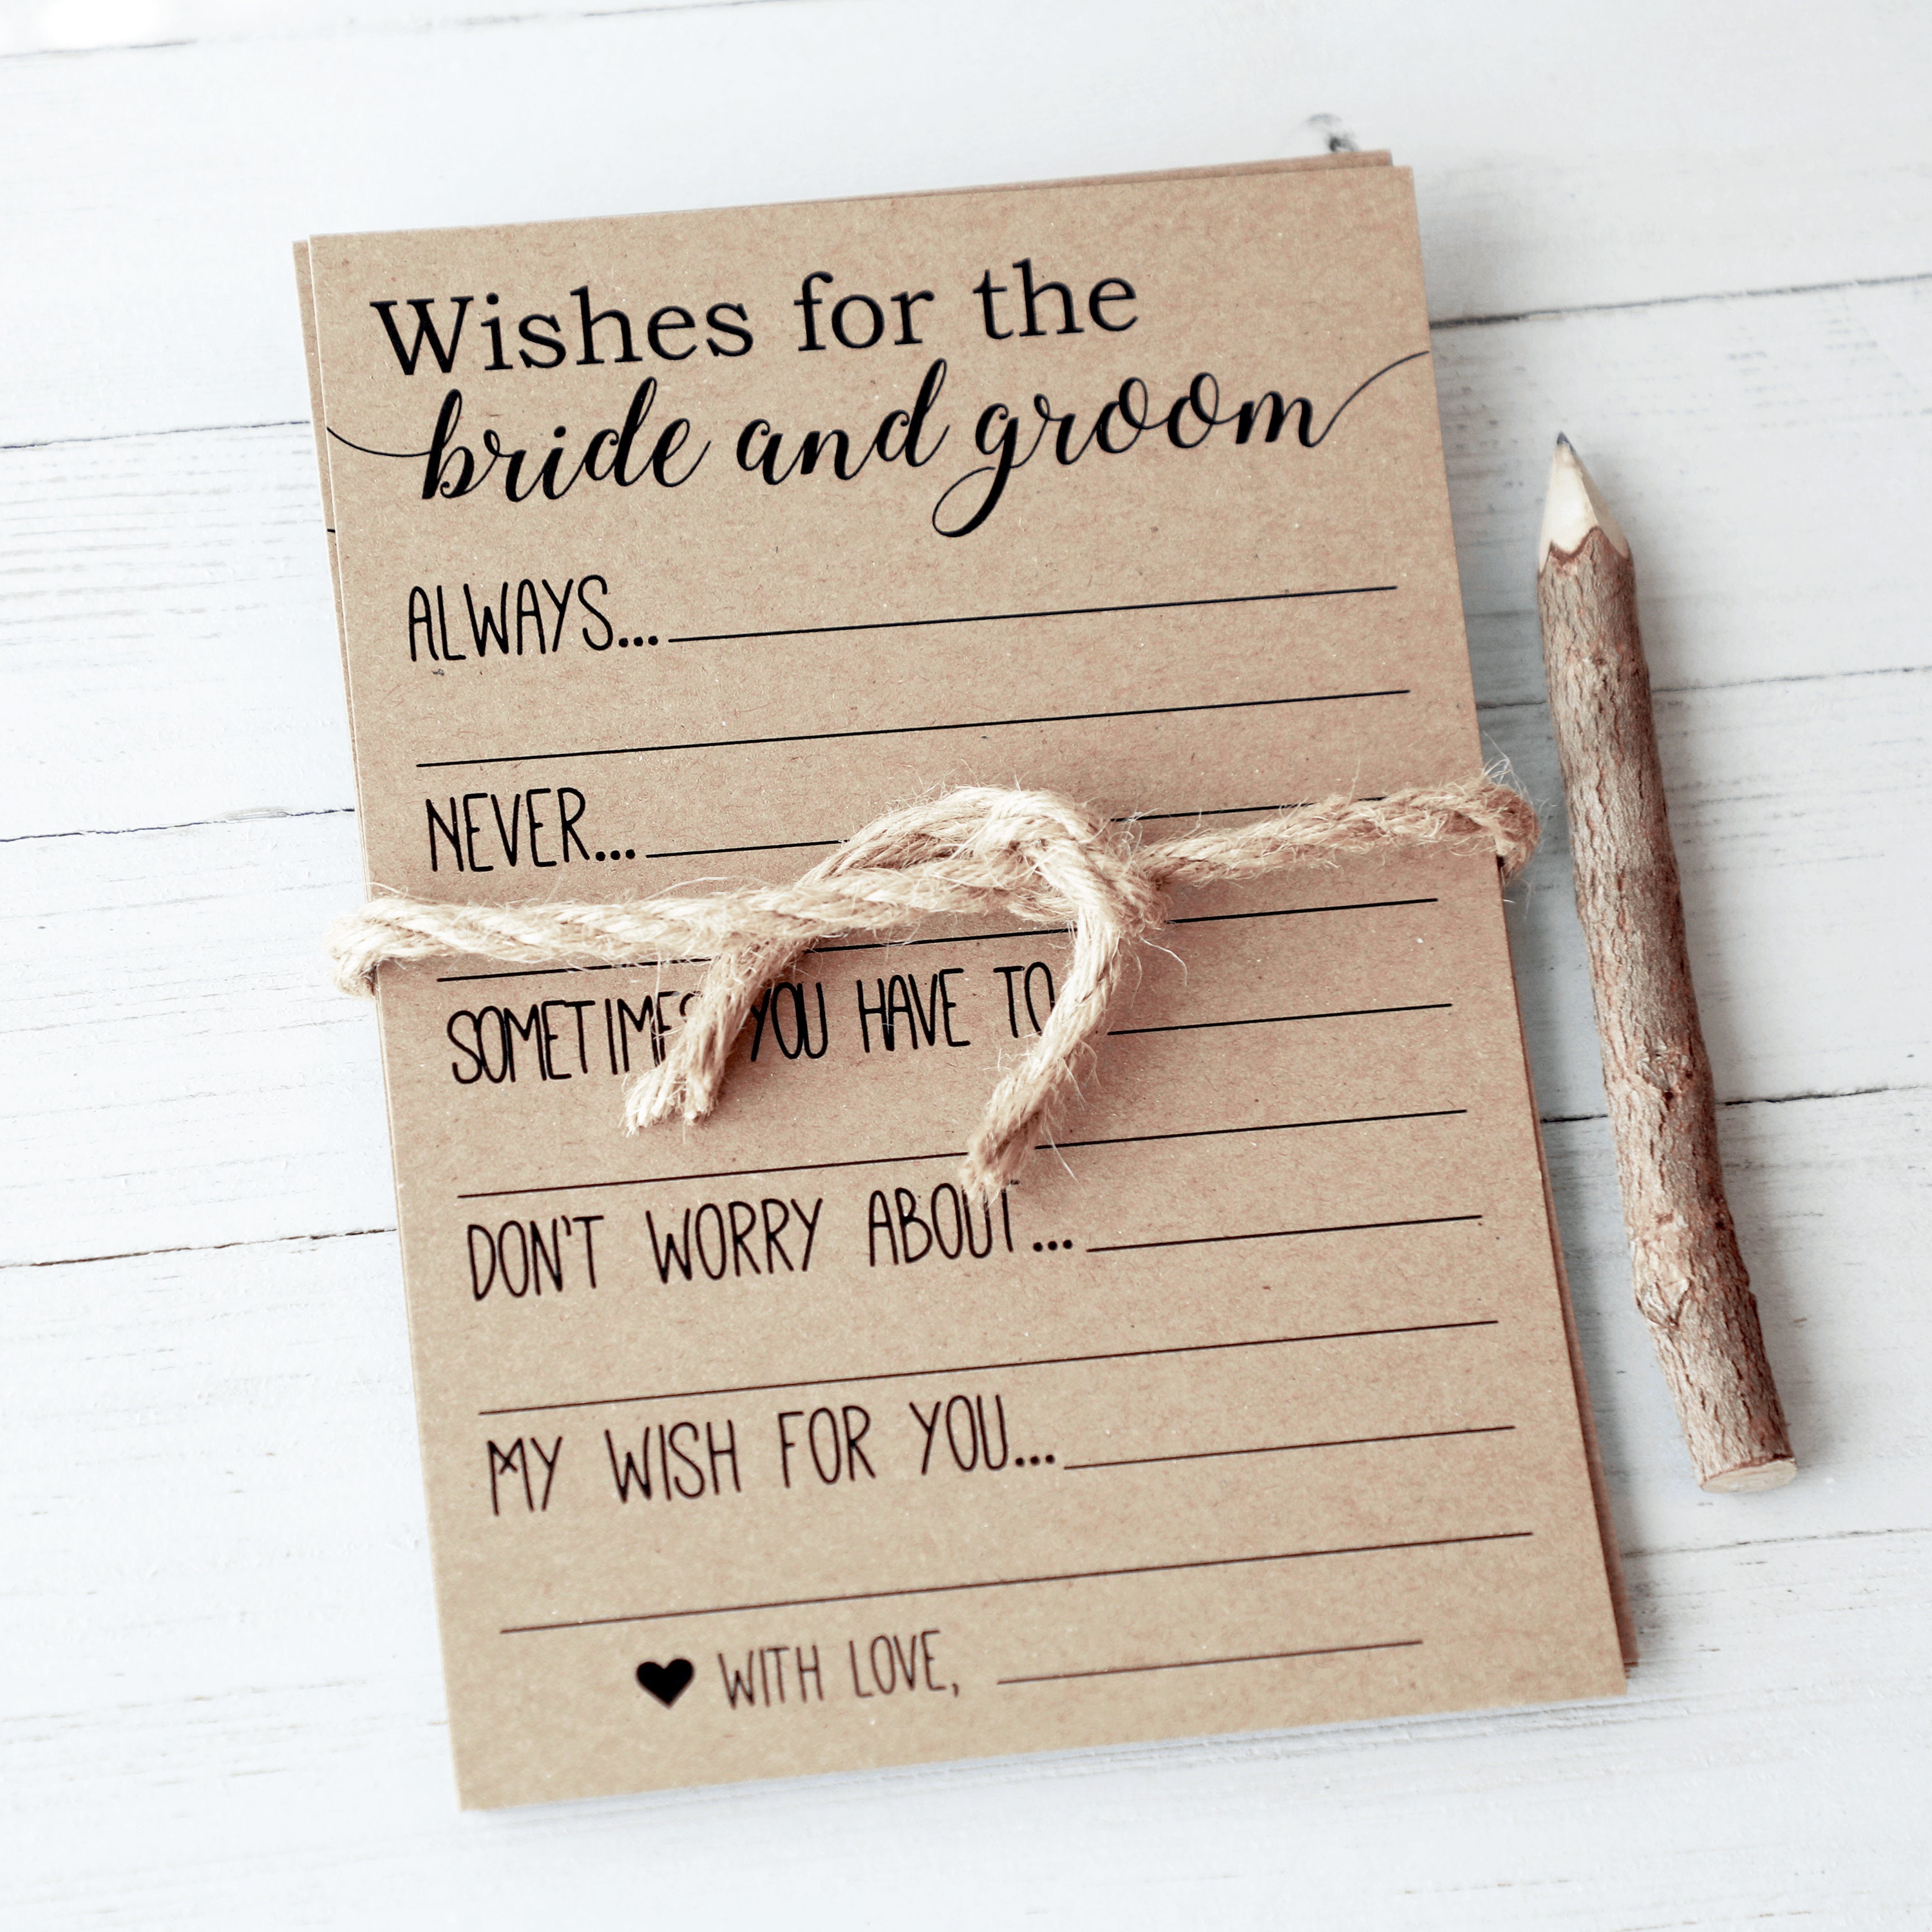 Wishes for the
bride and groom
ALWAYS...
NEVER...
SOMETIMES YOU HAVE TO
DON'T WORRY ABOUT...
MY WISH FOR YOU...
♥ WITH LOVE,